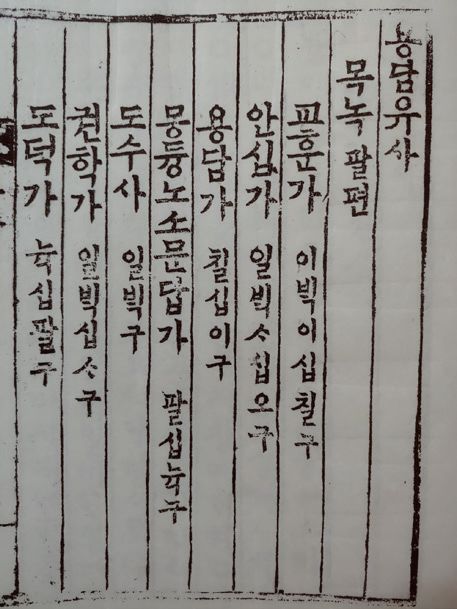 농담유사
목녹 팔편
교훈가 이빅이십칠구
안심가 일빅ᄉᆞ십오구
용담가 칠십이구
몽듕노소문답가 팔십뉵구
도수사 일빅구
권학가 일빅십ᄉᆞ구
도덕가 뉵십팔구